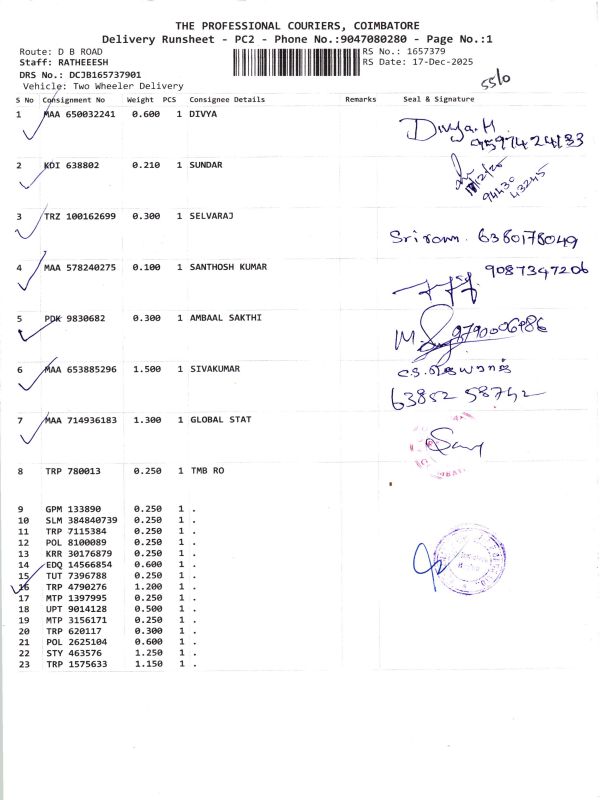 THE PROFESSIONAL COURIERS, COIMBATORE
Delivery Runsheet - PC2 - Phone No.:9047080280 - Page No.:1
Route: D B ROAD
RS No.: 1657379
Staff: RATHEEESH
RS Date: 17-Dec-2025
DRS No.: DCJB165737901
Vehicle: Two Wheeler Delivery
5510
S No Consignment No Weight PCS Consignee Details Remarks Seal & Signature
1 MAA 650032241 0.600 1 DIVYA Divya.H
9597424133
2 KDI 638802 0.210 1 SUNDAR
94430
43245
3 TRZ 100162699 0.300 1 SELVARAJ
Sriram. 6380178049
4 MAA 578240275 0.100 1 SANTHOSH KUMAR 9087347206
5 PDK 9830682 0.300 1 AMBAAL SAKTHI
9790006486
6 MAA 653885296 1.500 1 SIVAKUMAR
63852 58742
7 MAA 714936183 1.300 1 GLOBAL STAT
8 TRP 780013 0.250 1 TMB RO
9 GPM 133890 0.250 1 .
10 SLM 384840739 0.250 1 .
11 TRP 7115384 0.250 1 .
12 POL 8100089 0.250 1 .
13 KRR 30176879 0.250 1 .
14 EDQ 14566854 0.600 1 .
15 TUT 7396788 0.250 1 .
16 TRP 4790276 1.200 1 .
17 MTP 1397995 0.250 1 .
18 UPT 9014128 0.500 1 .
19 MTP 3156171 0.250 1 .
20 TRP 620117 0.300 1 .
21 POL 2625104 0.600 1 .
22 STY 463576 1.250 1 .
23 TRP 1575633 1.150 1 .